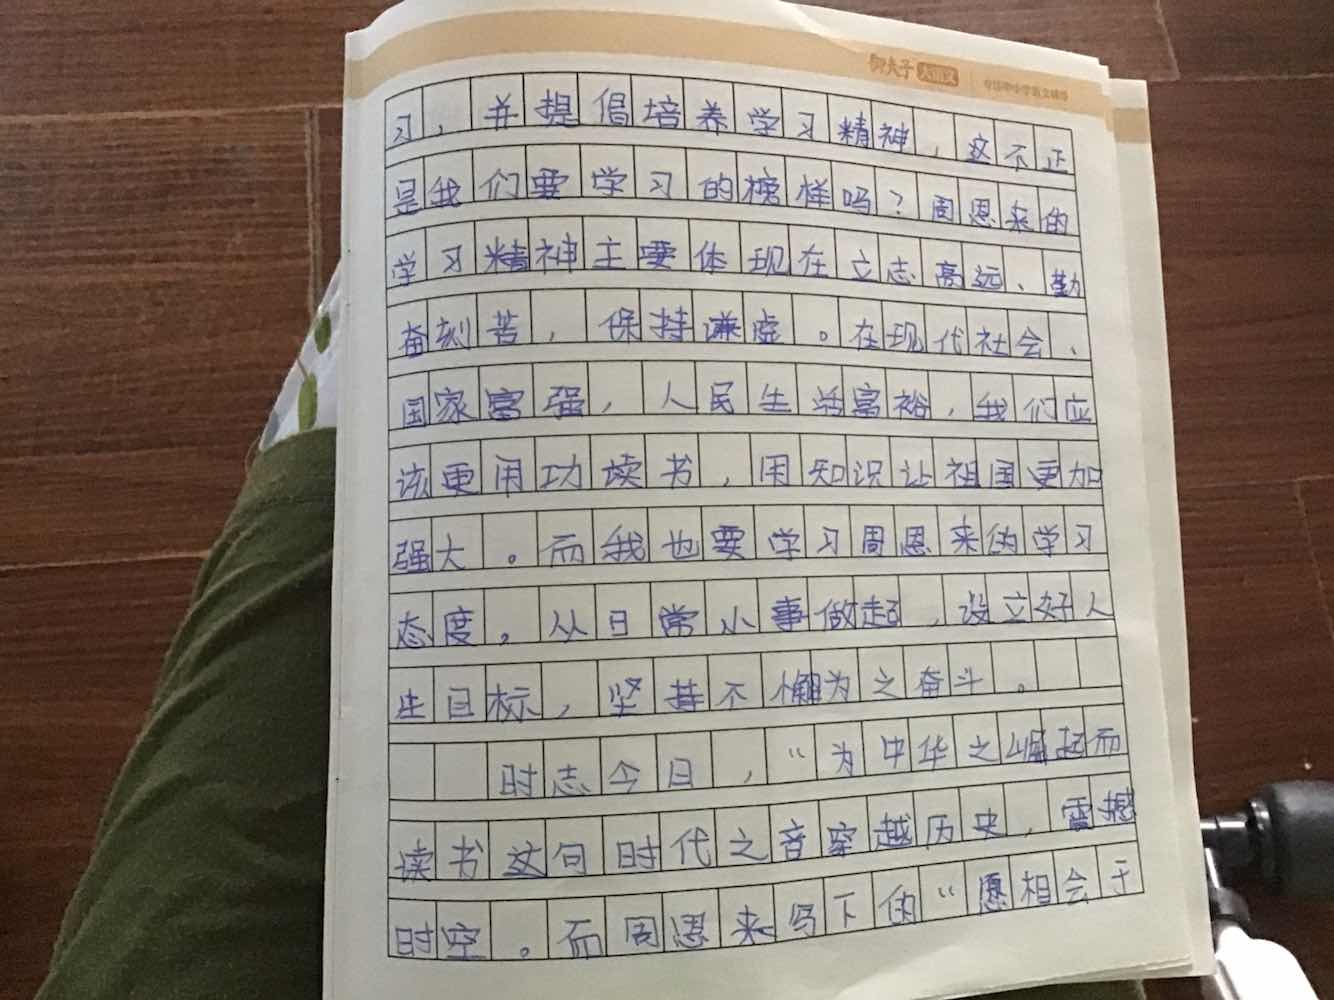 御夫子 大语文
习，并提倡培养学习精神，这不正
是我们要学习的榜样吗？周恩来的
学习精神主要体现在立志高远、勤
奋刻苦，保持谦虚。在现代社会、
国家富强，人民生活富裕，我们应
该更用功读书，用知识让祖国更加
强大。而我也要学习周恩来的学习
态度。从日常小事做起，设立好人
生目标，坚持不懈为之奋斗。
时志今日，“为中华之崛起而
读书这句时代之音穿越历史，震撼
时空。而周恩来写下的“愿相会于